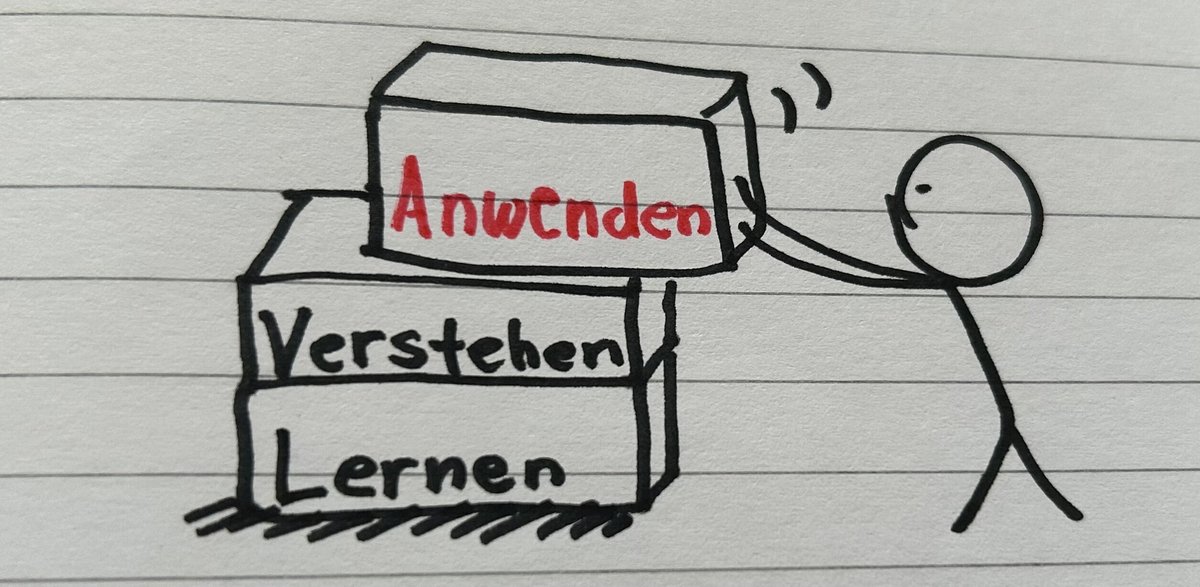 Anwenden
Verstehen
Lernen